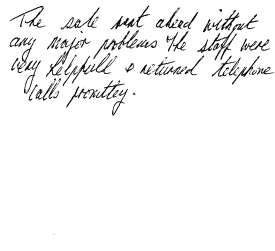 The sale went ahead without
any major problems The staff were
very helpfull & returned telephone
calls promttey.